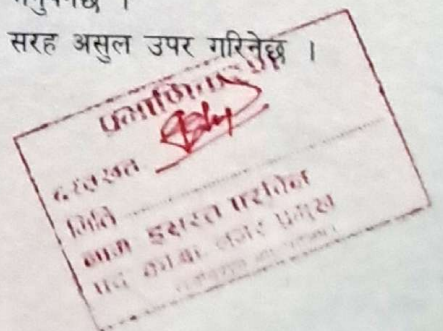 सरह असुल उपर गरिनेछ ।
प्रमाणित
दस्तखत
मिति
नाम इसरत परविन
पद का.बा. नगर प्रमुख